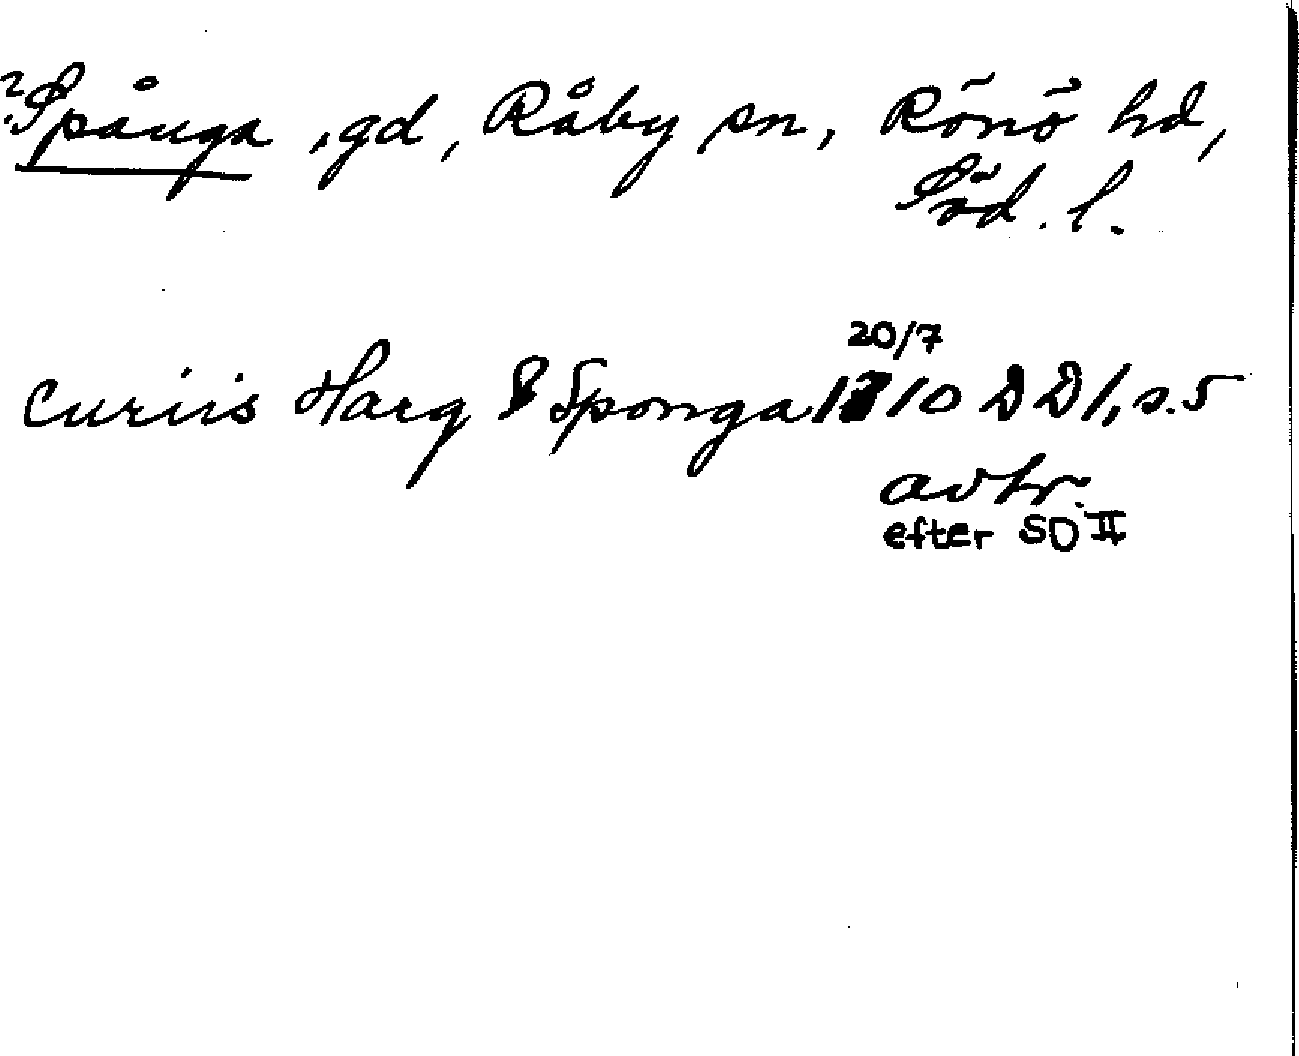 ? Spånga, gd, Råby sn, Rönö hd,
Söd. l.
20/7
curiis Harg & Sponga 1310 D D 1, s. 5
avtr.
efter SD II